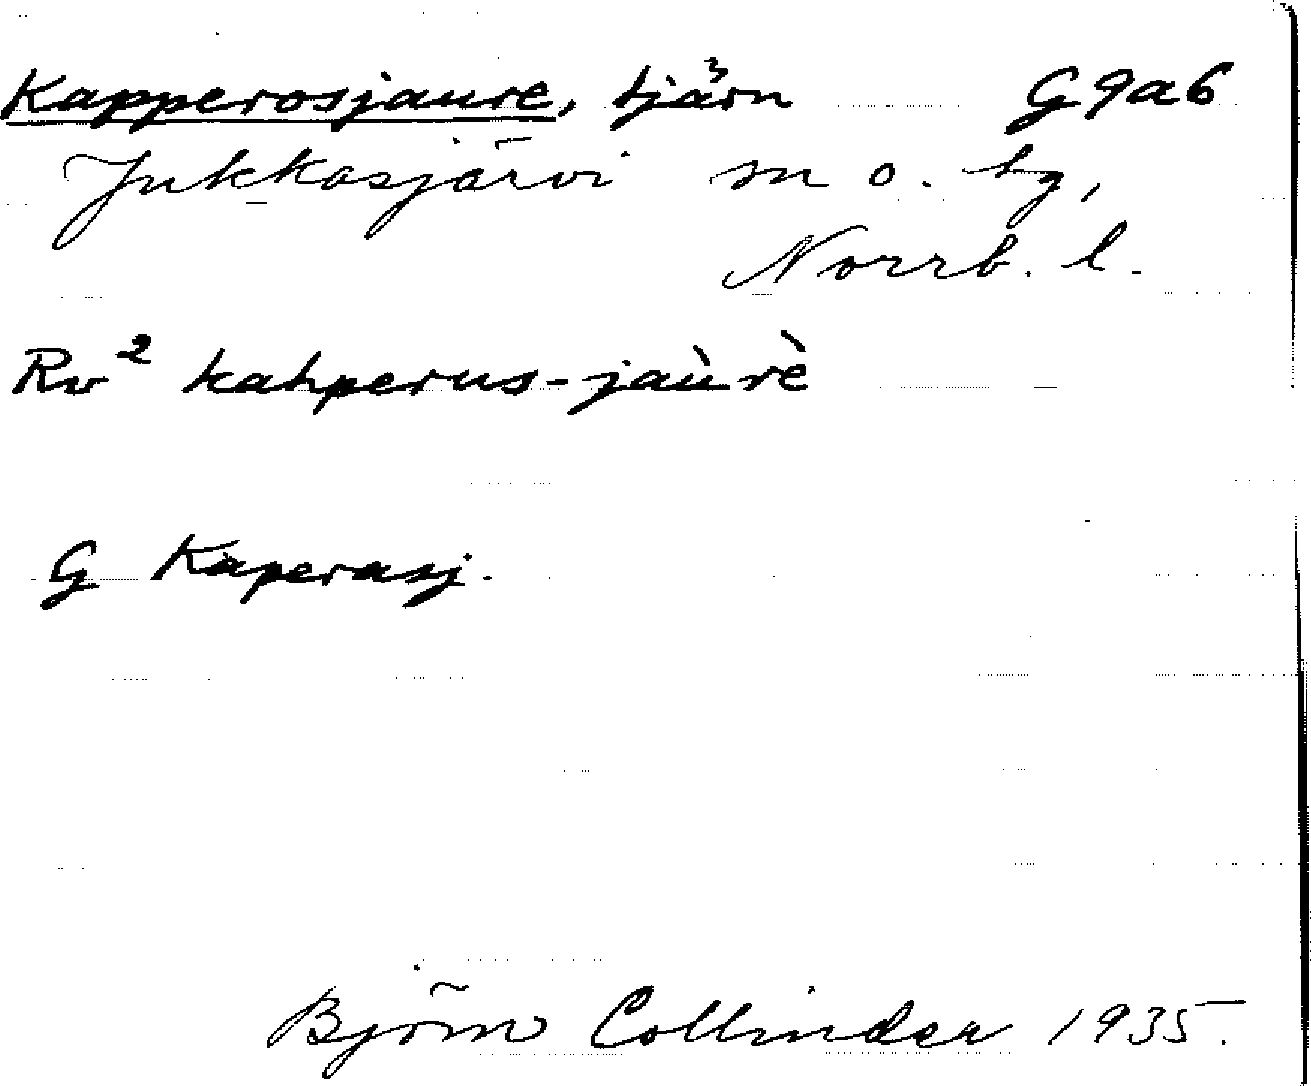 Kapperosjaure, tjärn G9a6
Jukkasjärvi sn o. tg,
Norrb. l.
Rv² kahperus-jaùrè
G Kaperasj.
Björn Collinder 1935.